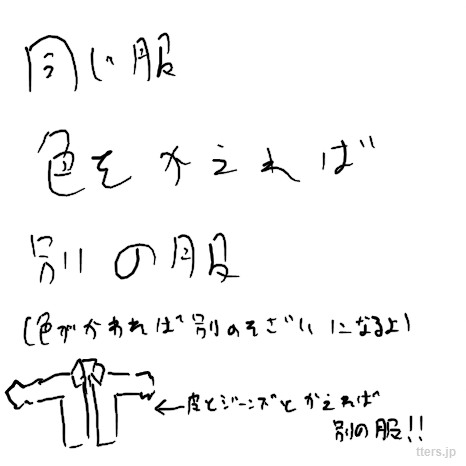 同じ服
色をかえれば
別の服
(色がかわれば別のそざいになるよ)
←皮とジーンズとかえれば
別の服!!
tters.jp